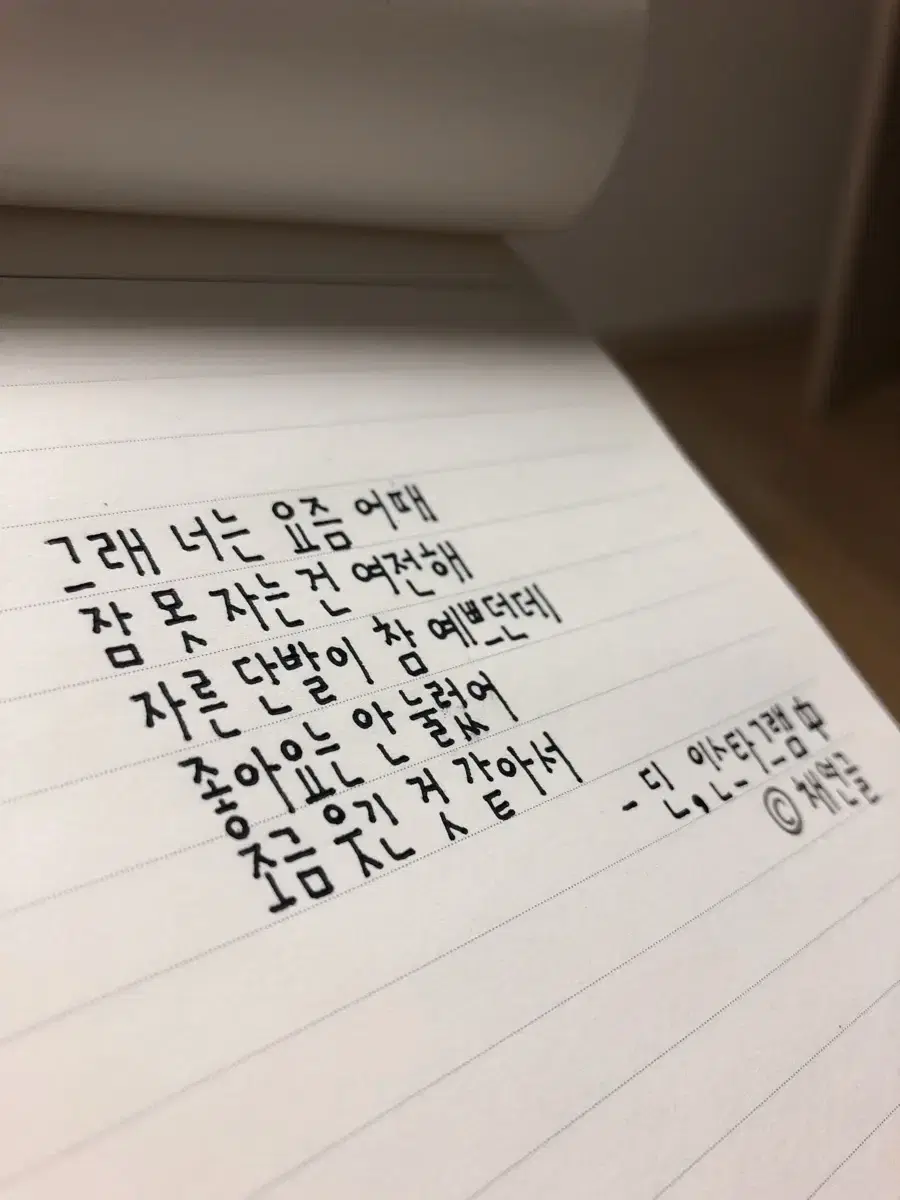 그래 너는 요즘 어때
잠 못 자는 건 여전해
자른 단발이 참 예쁘던데
좋아요는 안 눌렀어
조금 웃긴 것 같아서
- 딘, 인스타그램 中
© 채연글